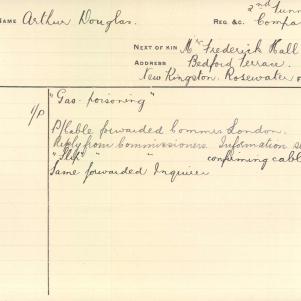 2nd Tunn
NAME Arthur Douglas. REG &C. Compa
NEXT OF KIN Mr Frederick Hall
ADDRESS Bedford Terrace.
New Kingston. Rosewater
"Gas poisoning"
P/Cable forwarded Commrs London.
Reply from Commissioners. Information
" " confirming cabl
Same forwarded Inquirer